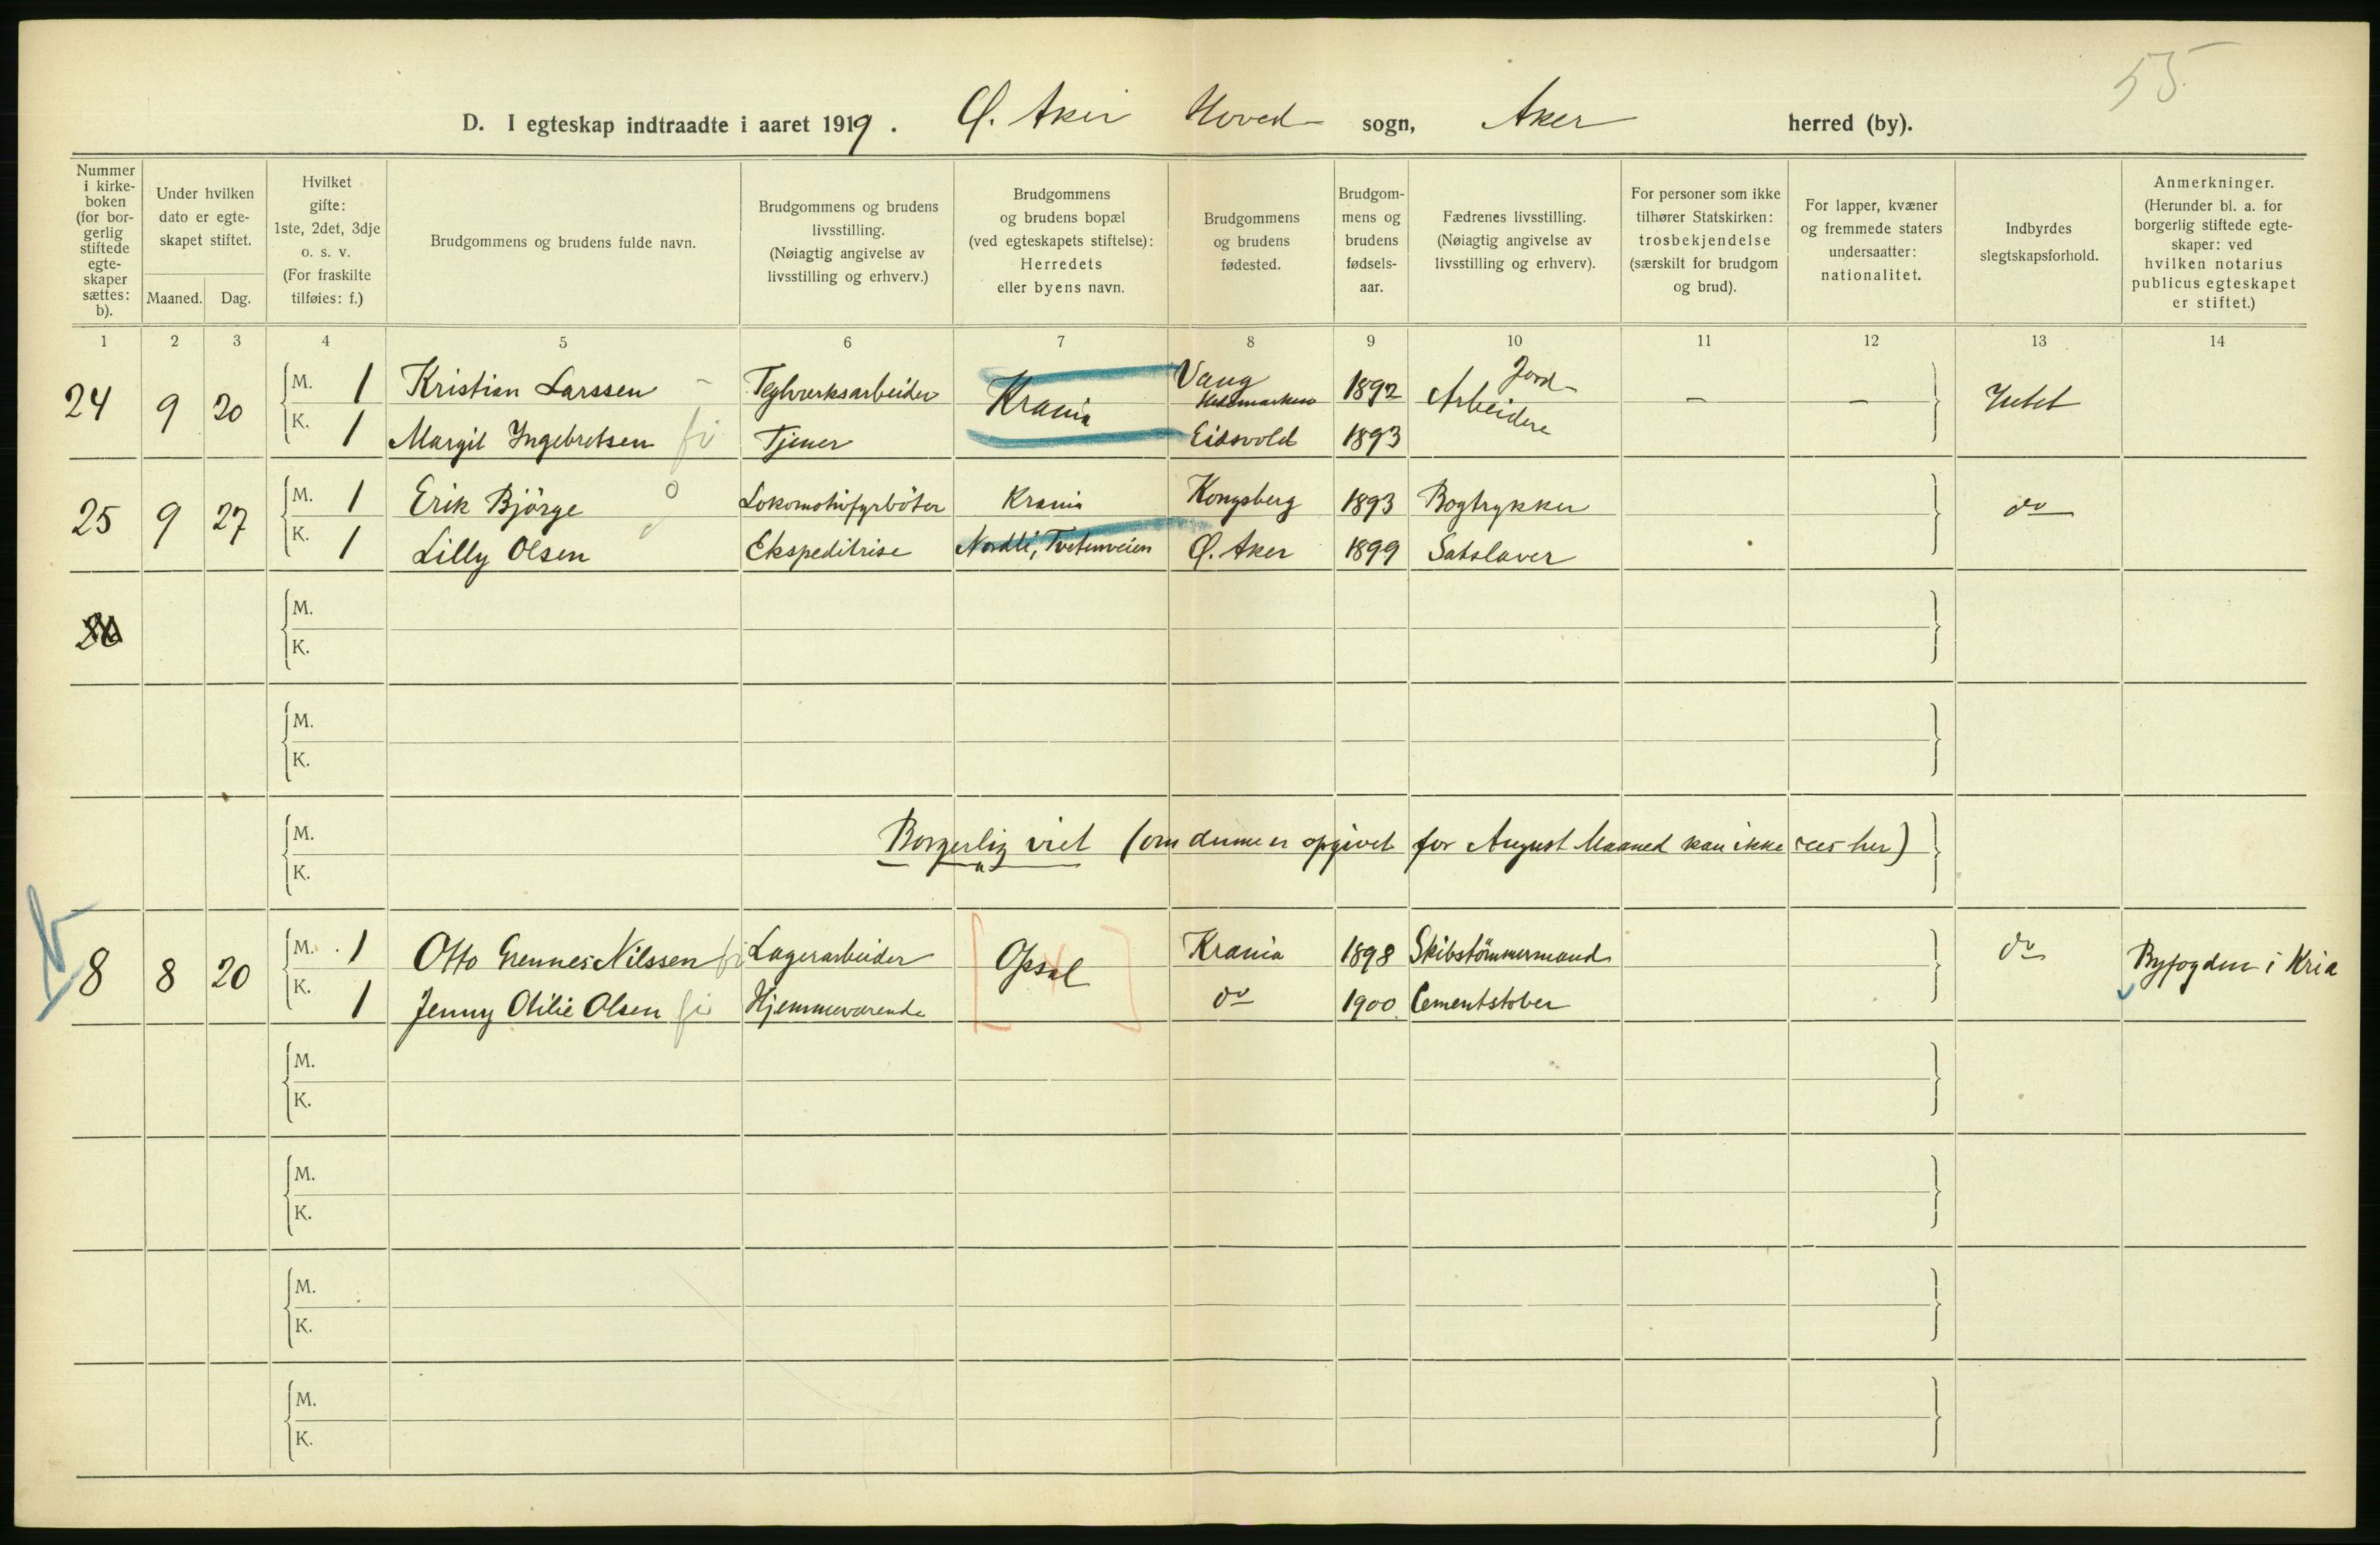 55
D. I egteskap indtraadte i aaret 1919. Ø. Aker Hoved sogn, Aker herred (by).
Nummer i kirke- boken (for bor- gerlig stiftede egte- skaper sættes: b).
Under hvilken dato er egte- skapet stiftet.
Maaned. Dag.
Hvilket gifte: 1ste, 2det, 3dje o. s. v. (For fraskilte tilføies: f.)
Brudgommens og brudens fulde navn.
Brudgommens og brudens livsstilling. (Nøiagtig angivelse av livsstilling og erhverv.)
Brudgommens og brudens bopæl (ved egteskapets stiftelse): Herredets eller byens navn.
Brudgommens og brudens fødested.
Brudgom- mens og brudens fødsels- aar.
Fædrenes livsstilling. (Nøiagtig angivelse av livsstilling og erhverv).
For personer som ikke tilhører Statskirken: trosbekjendelse (særskilt for brudgom og brud).
For lapper, kvæner og fremmede staters undersaatter: nationalitet.
Indbyrdes slegtskapsforhold.
Anmerkninger. (Herunder bl. a. for borgerlig stiftede egte- skaper: ved hvilken notarius publicus egteskapet er stiftet.)
1 2 3 4 5 6 7 8 9 10 11 12 13 14
24 9 20 M. 1 Kristian Larssen Teglverksarbeider Krania Vang Hedemarken 1892 Jord- Arbeidere – – Intet
K. 1 Margit Ingebretsen Tjener Eidsvold 1893
25 9 27 M. 1 Erik Bjørge Lokomotivfyrbøter Krania Kongsberg 1893 Bogtrykker do
K. 1 Lilly Olsen Ekspeditrise Nordli, Tvetenveien Ø. Aker 1899 Satslaver
26 M.
K.
M.
K.
M. Borgerlig viet (om denne er opgivet for August Maaned kan ikke sees her)
K.
8 8 20 M. 1 Otto Grennes Nilssen Lagerarbeider Opsal Krania 1898 Skibstömmermand do Byfogden i Kria
K. 1 Jenny Otilie Olsen Hjemmeværende do 1900 Cementstøber
M.
K.
M.
K.
M.
K.
M.
K.